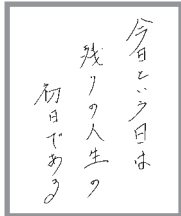 今日という日は
残りの人生の
初日である